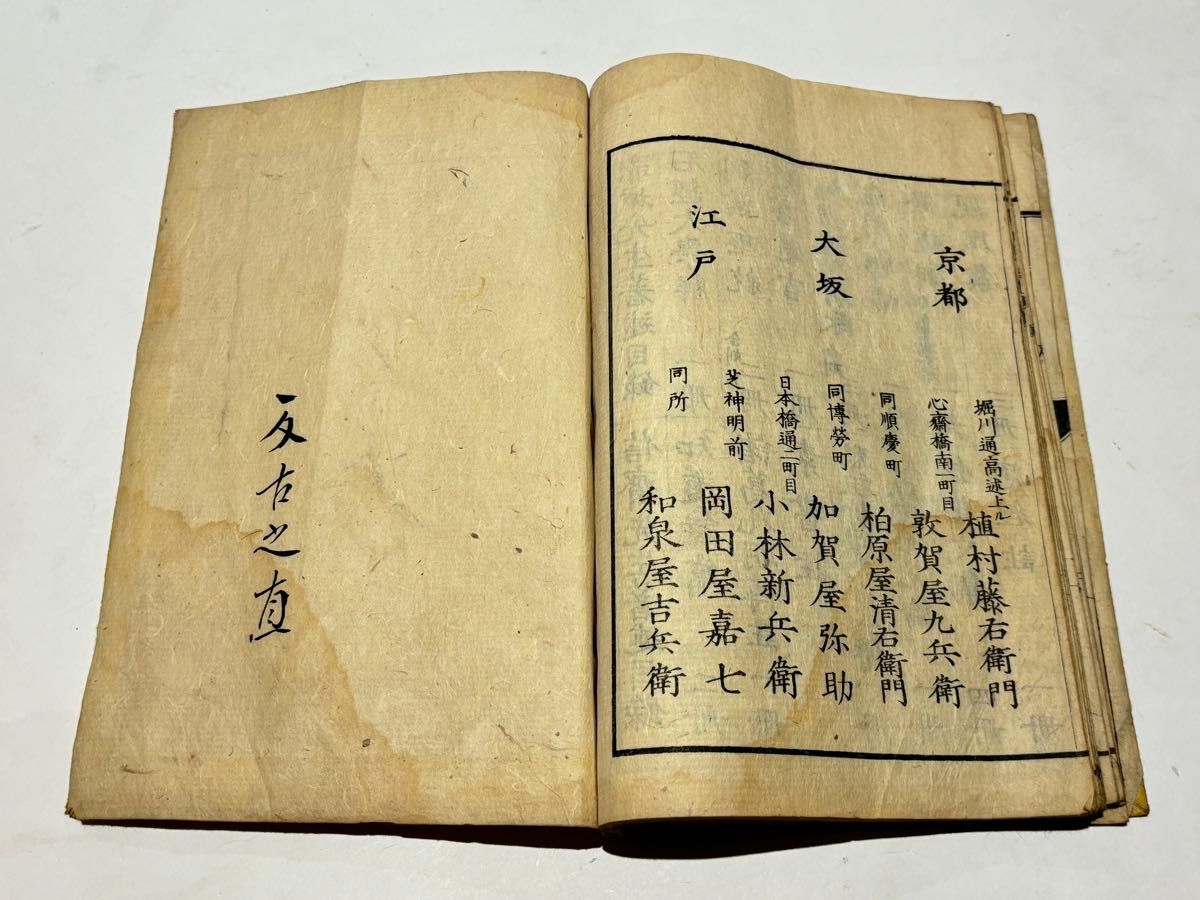 京都
堀川通高辻上ル 植村藤右衛門
大坂
心齋橋南一町目 敦賀屋九兵衛
同順慶町 柏原屋清右衛門
同博勞町 加賀屋弥助
江戸
日本橋通二町目 小林新兵衛
芝神明前 岡田屋嘉七
同所 和泉屋吉兵衛
反古之直